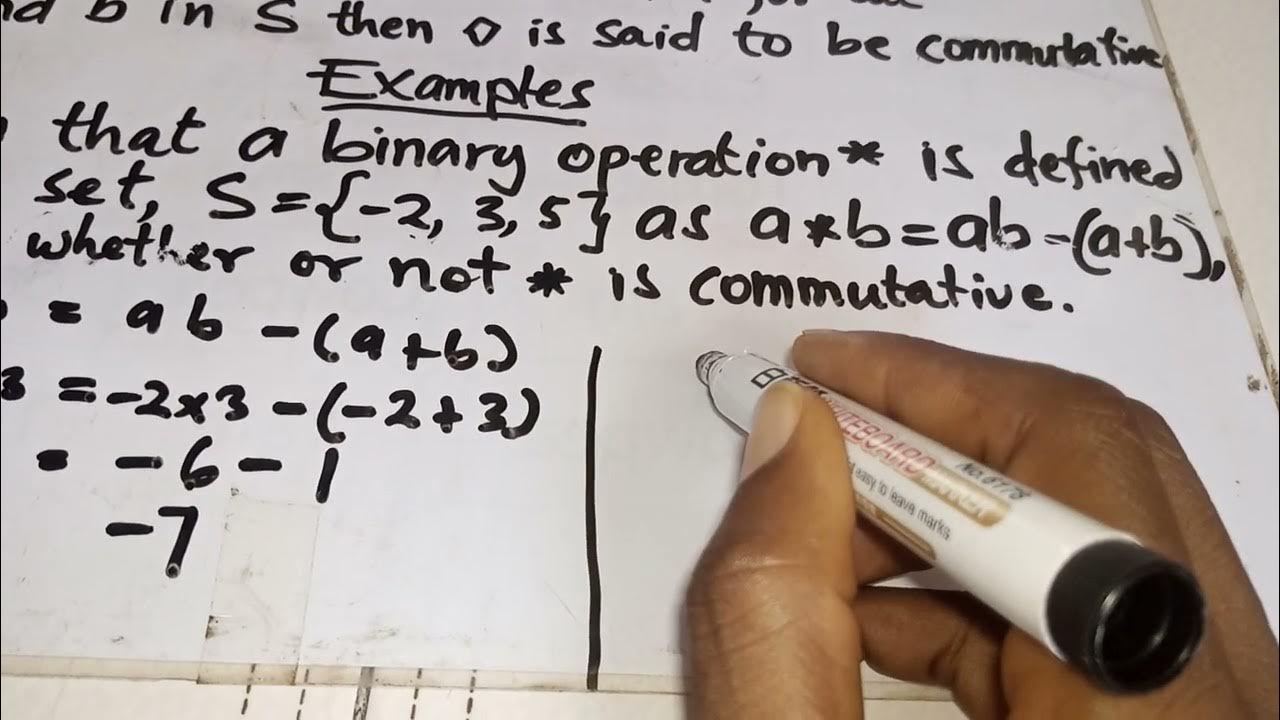 b in S then ◇ is said to be commutative
Examples
that a binary operation * is defined
set, S = {-2, 3, 5} as a*b = ab - (a+b),
whether or not * is commutative.
= ab - (a+b)
3 = -2x3 - (-2+3)
= -6 - 1
-7
WHITEBOARD MARKER NO.6778
easy to leave marks.